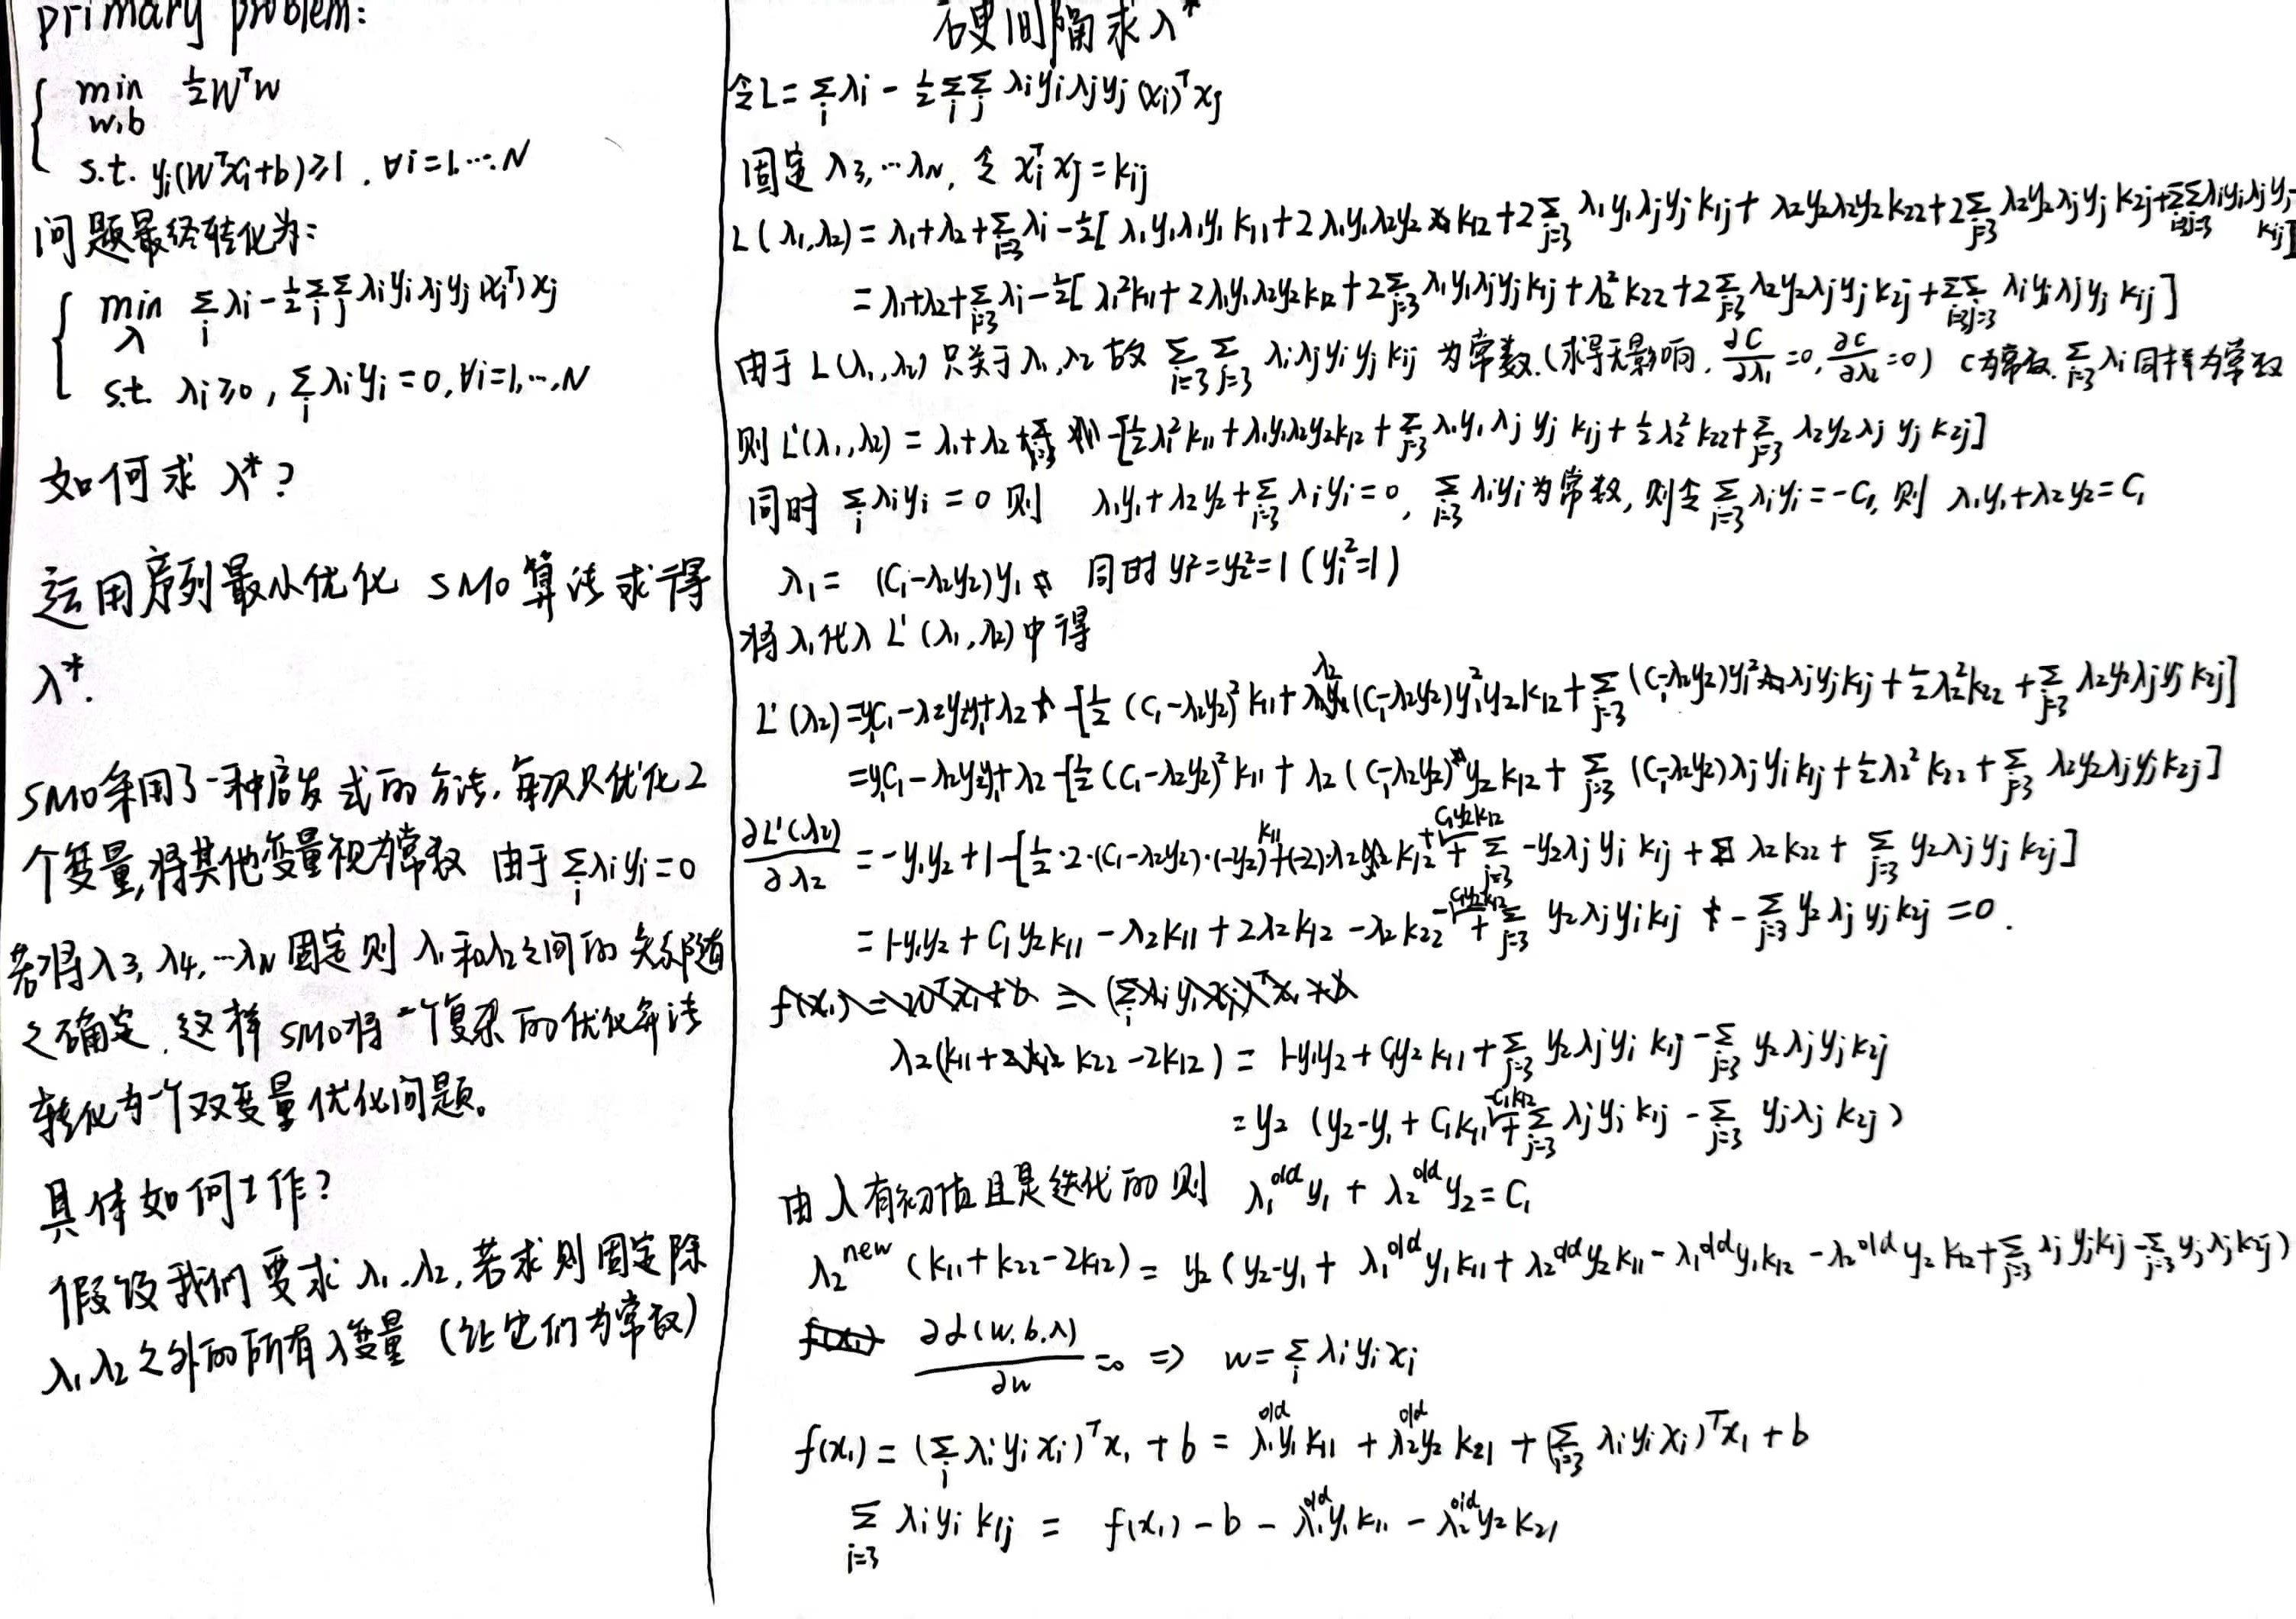 primary problem:
min 1/2 WᵀW
w,b
s.t. yᵢ(Wᵀxᵢ+b)≥1, ∀i=1,…N
问题最终转化为:
min Σᵢ λᵢ - 1/2 Σᵢ Σⱼ λᵢyᵢλⱼyⱼ(xᵢᵀ)xⱼ
λ
s.t. λᵢ≥0, Σᵢ λᵢyᵢ=0, ∀i=1,…,N
如何求 λ*?
运用序列最小优化 SMO算法求得
λ*.
SMO采用了一种启发式的方法,每次只优化2
个变量,将其他变量视为常数 由于Σᵢ λᵢyᵢ=0
若将λ3, λ4,…λN固定则 λ1和λ2之间的关系随
之确定,这样SMO将一个复杂的优化算法
转化为一个双变量优化问题。
具体如何工作?
假设我们要求 λ1,λ2,若求则固定除
λ1,λ2之外的所有λ变量(让它们为常数)
硬间隔求λ*
令L = Σᵢ λᵢ - 1/2 Σᵢ Σⱼ λᵢyᵢλⱼyⱼ(xᵢ)ᵀxⱼ
固定 λ3,…λN, 令 xᵢᵀxⱼ=kᵢⱼ
L(λ1,λ2) = λ1+λ2+Σ_{i=3} λᵢ - 1/2[λ1y1λ1y1k11+2λ1y1λ2y2k12+2Σ_{j=3} λ1y1λⱼyⱼk1j+λ2y2λ2y2k22+2Σ_{j=3} λ2y2λⱼyⱼk2j+Σ_{i=3}Σ_{j=3} λᵢyᵢλⱼyⱼkᵢⱼ]
= λ1+λ2+Σ_{i=3} λᵢ - 1/2[λ1²k11+2λ1y1λ2y2k12+2Σ_{j=3} λ1y1λⱼyⱼk1j+λ2²k22+2Σ_{j=3} λ2y2λⱼyⱼk2j+Σ_{i=3}Σ_{j=3} λᵢyᵢλⱼyⱼkᵢⱼ]
由于L(λ1,λ2)只关于λ1,λ2 故 Σ_{i=3}Σ_{j=3} λᵢλⱼyᵢyⱼkᵢⱼ 为常数.(求导无影响, ∂C/∂λ1=0, ∂C/∂λ2=0) C为常数. Σ_{i=3} λᵢ同样为常数
则 L'(λ1,λ2) = λ1+λ2 -[1/2 λ1²k11+λ1y1λ2y2k12+Σ_{j=3} λ1y1λⱼyⱼk1j+1/2 λ2²k22+Σ_{j=3} λ2y2λⱼyⱼk2j]
同时 Σᵢ λᵢyᵢ=0 则 λ1y1+λ2y2+Σ_{i=3} λᵢyᵢ=0, Σ_{i=3} λᵢyᵢ为常数, 则令Σ_{i=3} λᵢyᵢ=-C1, 则 λ1y1+λ2y2=C1
λ1= (C1-λ2y2)y1 同时 y1²=y2²=1 (yᵢ²=1)
将λ1代入 L'(λ1,λ2)中得
L'(λ2)=y1C1-λ2y2y1+λ2 -[1/2 (C1-λ2y2)²k11+λ2(C1-λ2y2)y1²y2k12+Σ_{j=3} (C1-λ2y2)y1²λⱼyⱼk1j+1/2 λ2²k22+Σ_{j=3} λ2y2λⱼyⱼk2j]
=y1C1-λ2y2y1+λ2-[1/2 (C1-λ2y2)²k11+λ2(C1-λ2y2)y2k12+Σ_{j=3} (C1-λ2y2)λⱼyⱼk1j+1/2 λ2²k22+Σ_{j=3} λ2y2λⱼyⱼk2j]
∂L'(λ2)/∂λ2 = -y1y2+1-[1/2·2·(C1-λ2y2)·(-y2)k11+(-2)·λ2k12+C1y2k12+Σ_{j=3} -y2λⱼyⱼk1j+λ2k22+Σ_{j=3} y2λⱼyⱼk2j]
=1-y1y2+C1y2k11-λ2k11+2λ2k12-λ2k22-C1y2k12+Σ_{j=3} y2λⱼyⱼk1j-Σ_{j=3} y2λⱼyⱼk2j=0.
λ2(k11+k22-2k12) = 1-y1y2+C1y2k11+Σ_{j=3} y2λⱼyⱼk1j-Σ_{j=3} y2λⱼyⱼk2j
=y2 (y2-y1+C1k11-C1k12+Σ_{j=3} λⱼyⱼk1j-Σ_{j=3} yⱼλⱼk2j)
由λ有初值且是迭代的则 λ1^old y1+λ2^old y2=C1
λ2^new (k11+k22-2k12)= y2(y2-y1+λ1^old y1k11+λ2^old y2k11-λ1^old y1k12-λ2^old y2k12+Σ_{j=3} λⱼyⱼk1j-Σ_{j=3} yⱼλⱼk2j)
∂L(w,b,λ)/∂w=0 ⇒ w=Σᵢ λᵢyᵢxᵢ
f(x1)=(Σᵢ λᵢyᵢxᵢ)ᵀx1+b=λ1^old y1k11+λ2^old y2k21+(Σ_{i=3} λᵢyᵢxᵢ)ᵀx1+b
Σ_{i=3} λᵢyᵢk1j = f(x1)-b-λ1^old y1k11-λ2^old y2k21